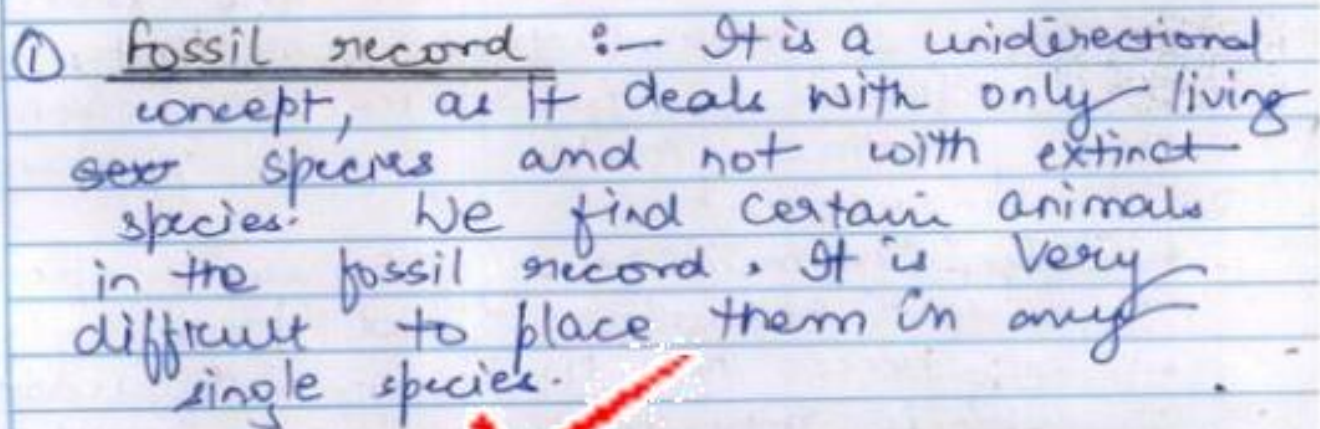 ① fossil record :— It is a unidirectional
concept, as it deals with only living
species and not with extinct
species. We find certain animals
in the fossil record. It is very
difficult to place them in any
single species.